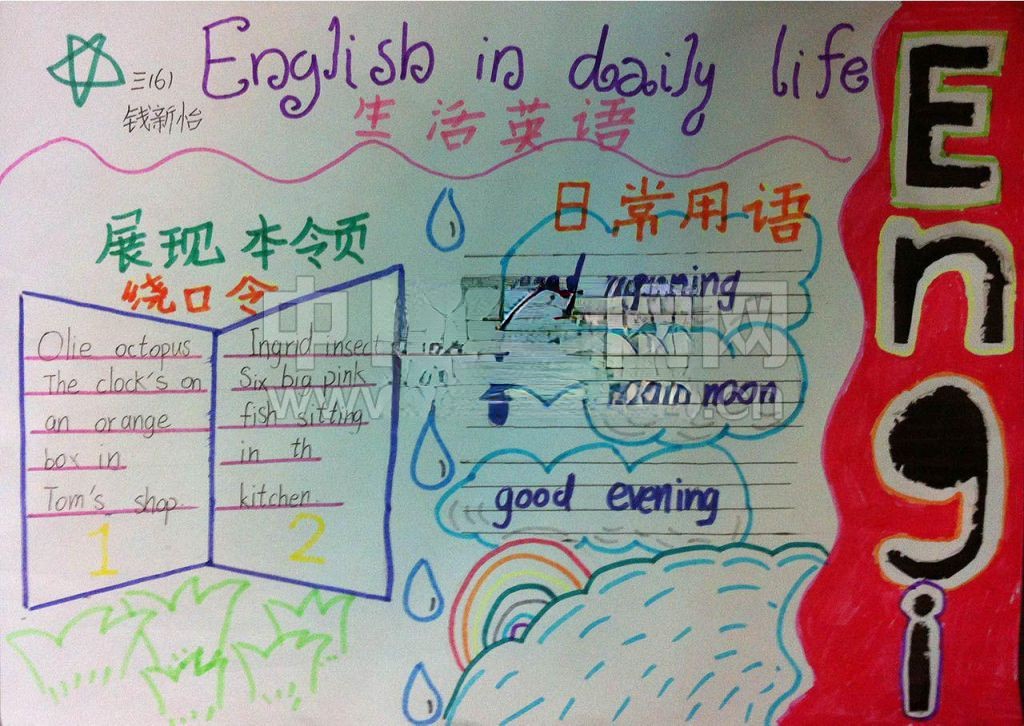 English in daily life
三(6)
钱新怡
生活英语
展现本领
绕口令
Olie octopus
The clock's on
an orange
box in
Tom's shop
1
Ingrid insect
Six big pink
fish sitting
in th
kitchen
2
日常用语
good
noon
good evening
Engi